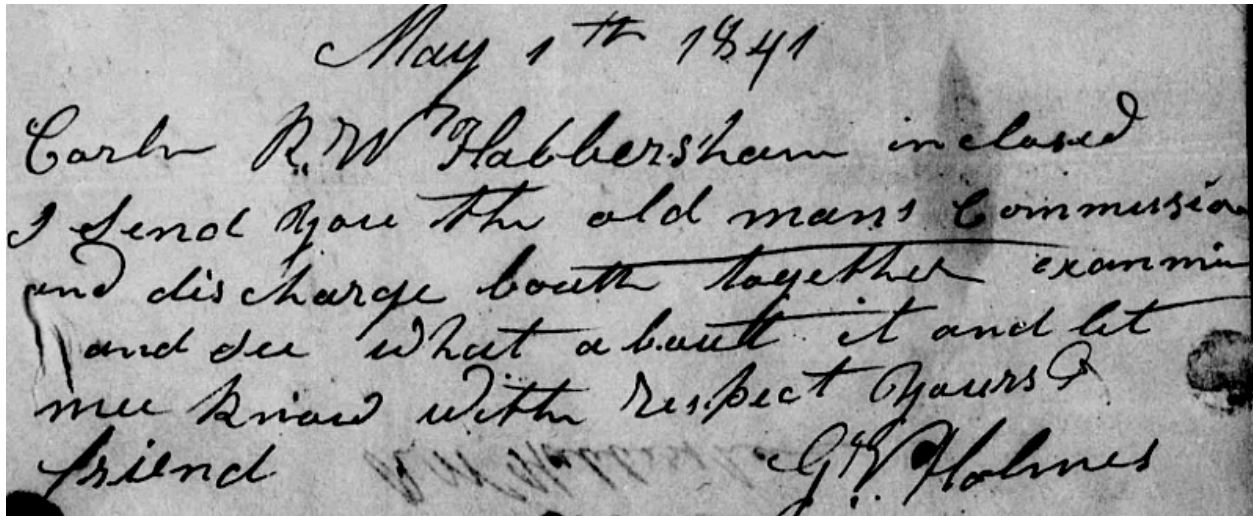 May 1th 1841
R. W Habbersham inclosed
I Send you the old mans Commission
and discharge bouth together exammin
and see what a boutt it and let
mee know with respect yours &
friend G. V. Holmes